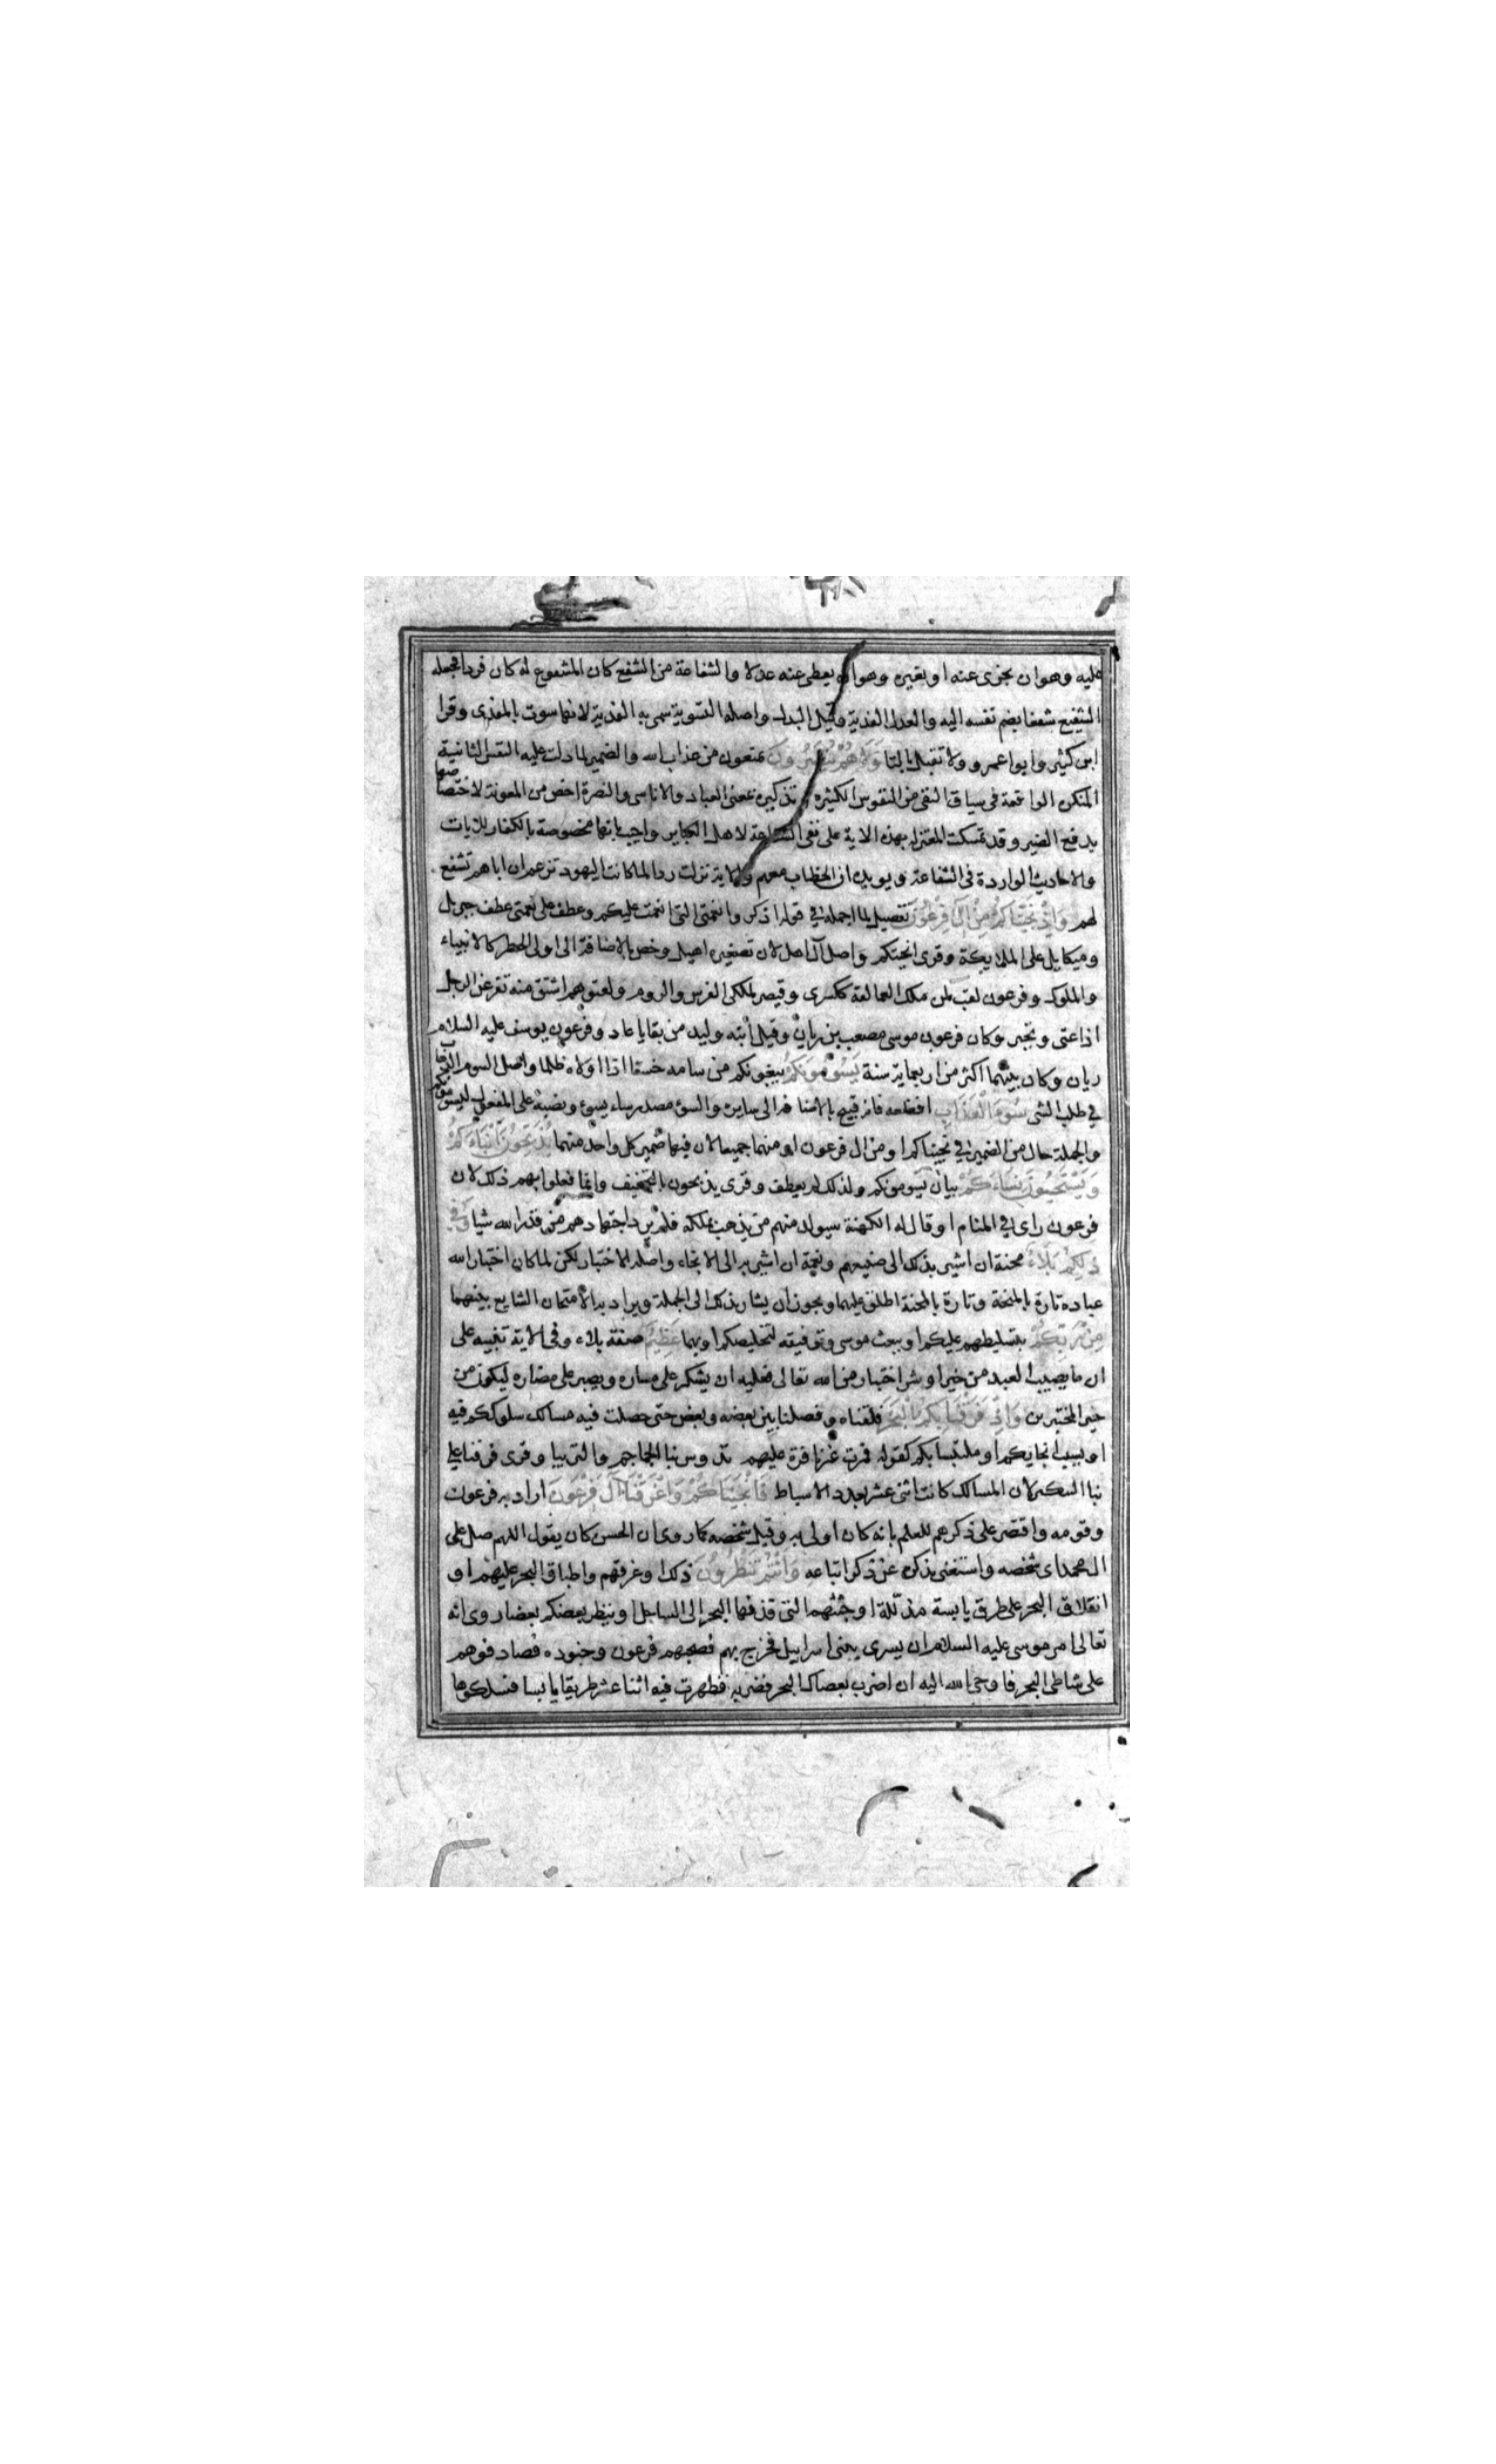 عليه وهو ان يجزى عنه او بغيره وهو ان يعطى عنه عدلا والشفاعة من الشفع كان المشفوع له كان فردا فجعله
الشفيع شفعا بضم نفسه اليه والعدل الفدية وقيل البدل واصله التسوية سمى به الفدية لانها سوت بالمفدى وقرا
ابن كثير وابوا عمرو ولا تقبل بالتا وَلَا هُمْ يُنْصَرُونَ يمنعون من عذاب الله والضمير لما دلت عليه النفس الثانية
المنكره الواقعة فى سياق النفى من النفوس الكثيرة وتذكيره بمعنى العباد والاناسى والنصرة اخص من المعونة لاختصاصها
بدفع الضير وقد تمسكت المعتزلة بهذه الاية على نفى الشفاعة لاهل الكباير واجيب بانها مخصوصة بالكفار للايات
والاحاديث الواردة فى الشفاعة ويويده ان الخطاب معهم والاية نزلت ردا لما كانت اليهود تزعم ان اباهم تشفع
لهم وَاِذْ نَجَّيْنَاكُمْ مِنْ اٰلِ فِرْعَوْنَ تفصيل لما اجمله في قوله اذكروا نعمتى التى انعمت عليكم وعطف على نعمتى عطف جبريل
وميكايل على الملايكة وقرى انجيتكم واصل آل اهل لان تصغيره اهيل وخص بالاضافة الى اولى الخطر كالانبياء
والملوك وفرعون لقب لمن ملك العمالقة ككسرى وقيصر لملكى الفرس والروم ولعتوهم اشتق منه تفرعن الرجل
اذا عتى وتجبر وكان فرعون موسى مصعب بن ريان وقيل ابنه وليد من بقايا عاد وفرعون يوسف عليه السلام
ريان وكان بينهما اكثر من اربعماية سنة يَسُومُونَكُمْ يبغونكم من سامه خسفا اذا اولاه ظلما واصل السوم الذهاب
في طلب الشى سُوءَ الْعَذَابِ افظعه فانه قبيح بالاضافة الى سايره والسوء مصدر ساء يسوء ونصبه على المفعول ليسومونكم
والجملة حال من الضمير في نجيناكم او من ال فرعون او منهما جميعا لان فيها ضمير كل واحد منهما يُذَبِّحُونَ اَبْنَاءَكُمْ
وَيَسْتَحْيُونَ نِسَاءَكُمْ بيان ليسومونكم ولذلك لم يعطف وقرى يذبحون بالتخفيف وانما فعلوا بهم ذلك لان
فرعون راى في المنام او قال له الكهنة سيولد منهم من يذهب بملكه فلم يرد اجتهادهم من قدر الله شيا وَفِي
ذٰلِكُمْ بَلَاءٌ محنة ان اشير بذلك الى صنيعهم ونعمة ان اشير به الى الانجاء واصله الاختبار لكن لما كان اختبار الله
عباده تارة بالمنحة وتارة بالمحنة اطلق عليهما ويجوز ان يشار بذلك الى الجملة ويراد به الامتحان الشايع بينهما
مِنْ رَبِّكُمْ بتسليطهم عليكم او ببعث موسى وتوفيقه لتخليصكم او بهما عَظِيمٌ صفة بلاء وفى الاية تنبيه على
ان ما يصيب العبد من خير او شر اختبار من الله تعالى فعليه ان يشكر على مساره ويصبر على مضاره ليكون من
خير المختبرين وَاِذْ فَرَقْنَا بِكُمُ الْبَحْرَ فلقناه وفصلنا بين بعضه وبعض حتى حصلت فيه مسالك سلوككم فيه
او بسبب انجايكم او ملتبسا بكم كقوله فمرت غير نافرة عليهم تدوس بنا الجماجم والتريبا وقرى فرقنا على
بنا التكثير لان المسالك كانت اثنى عشر بعدد الاسباط فَاَنْجَيْنَاكُمْ وَاَغْرَقْنَا اٰلَ فِرْعَوْنَ اراد به فرعون
وقومه واقتصر على ذكرهم للعلم بانه كان اولى به وقيل شخصه كما روى ان الحسن كان يقول اللهم صل على
ال محمد اى شخصه واستغنى بذكره عن ذكر اتباعه وَاَنْتُمْ تَنْظُرُونَ ذلك او غرقهم واطباق البحر عليهم او
انفلاق البحر على طرق يابسة مذللة او جثثهم التى قذفها البحر إلى الساحل او ينظر بعضكم بعضا روى انه
تعالى امر موسى عليه السلام ان يسرى ببنى اسراييل فخرج بهم فصبحهم فرعون وجنوده فصادفوهم
على شاطى البحر فاوحى الله اليه ان اضرب بعصاك البحر فضربه فظهرت فيه اثنا عشر طريقا يابسا فسلكوها